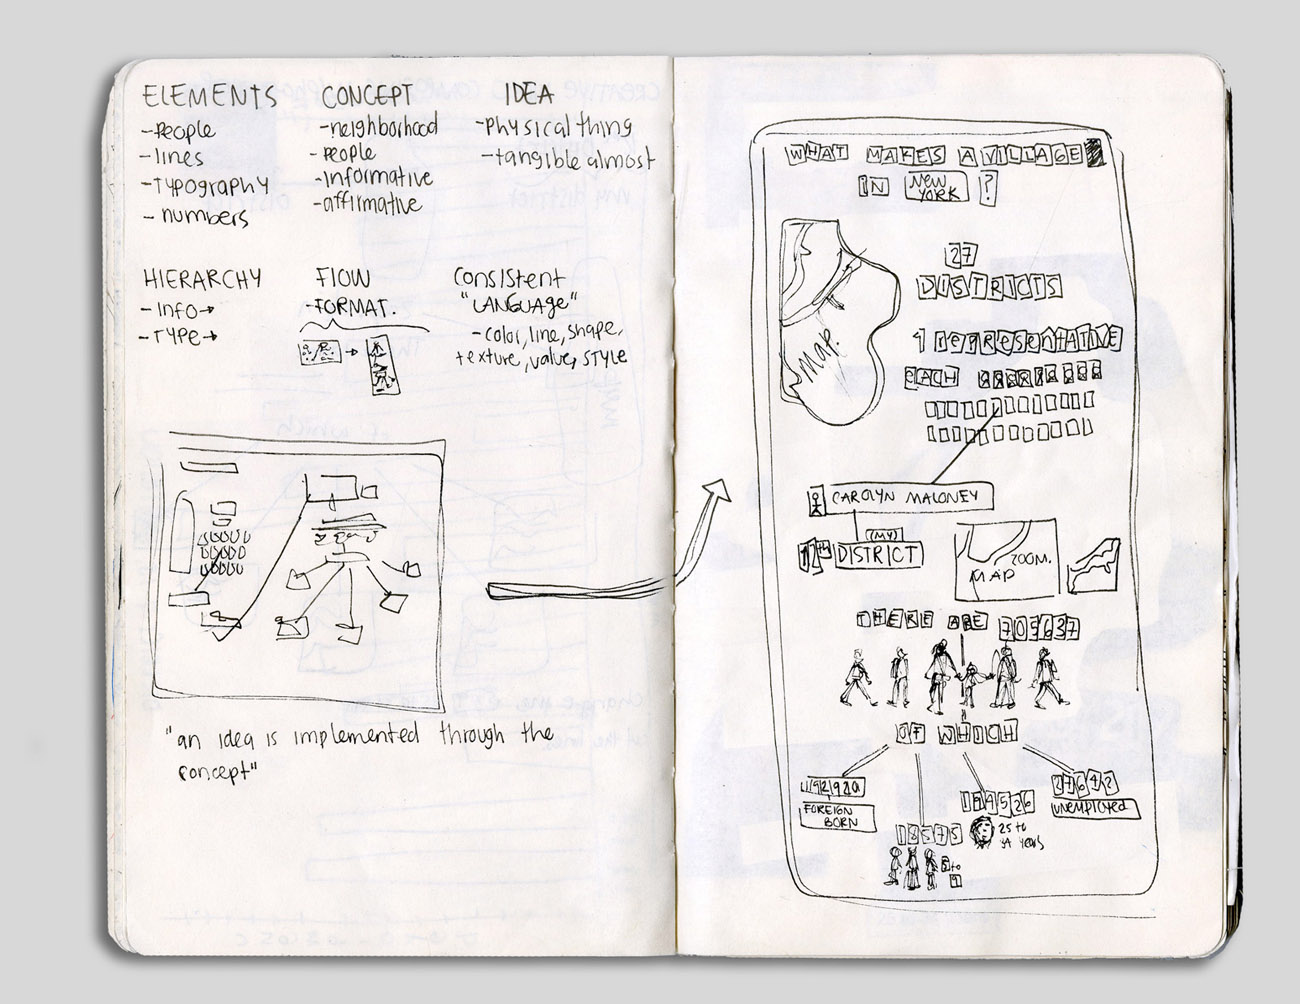 ELEMENTS
-People
-lines
-Typography
- numbers
CONCEPT
-neighborhood
- People
-informative
-affirmative
IDEA
-Physical thing
-tangible almost
HIERARCHY
- Info→
- Type→
FLOW
-FORMAT.
Consistent
"LANGUAGE"
- color, line, shape,
texture, value, STYLE
"an idea is implemented through the
concept"
WHAT MAKES A VILLAGE
IN NEW YORK ?
MAP.
27
DISTRICTS
1 representATIVE
EACH
CAROLYN MALONEY
(MY)
DISTRICT
MAP
ZOOM.
THERE ARE 705637
OF WHICH
FOREIGN
BORN
18575
to
194526
25 to
34 years
27642
unemployed